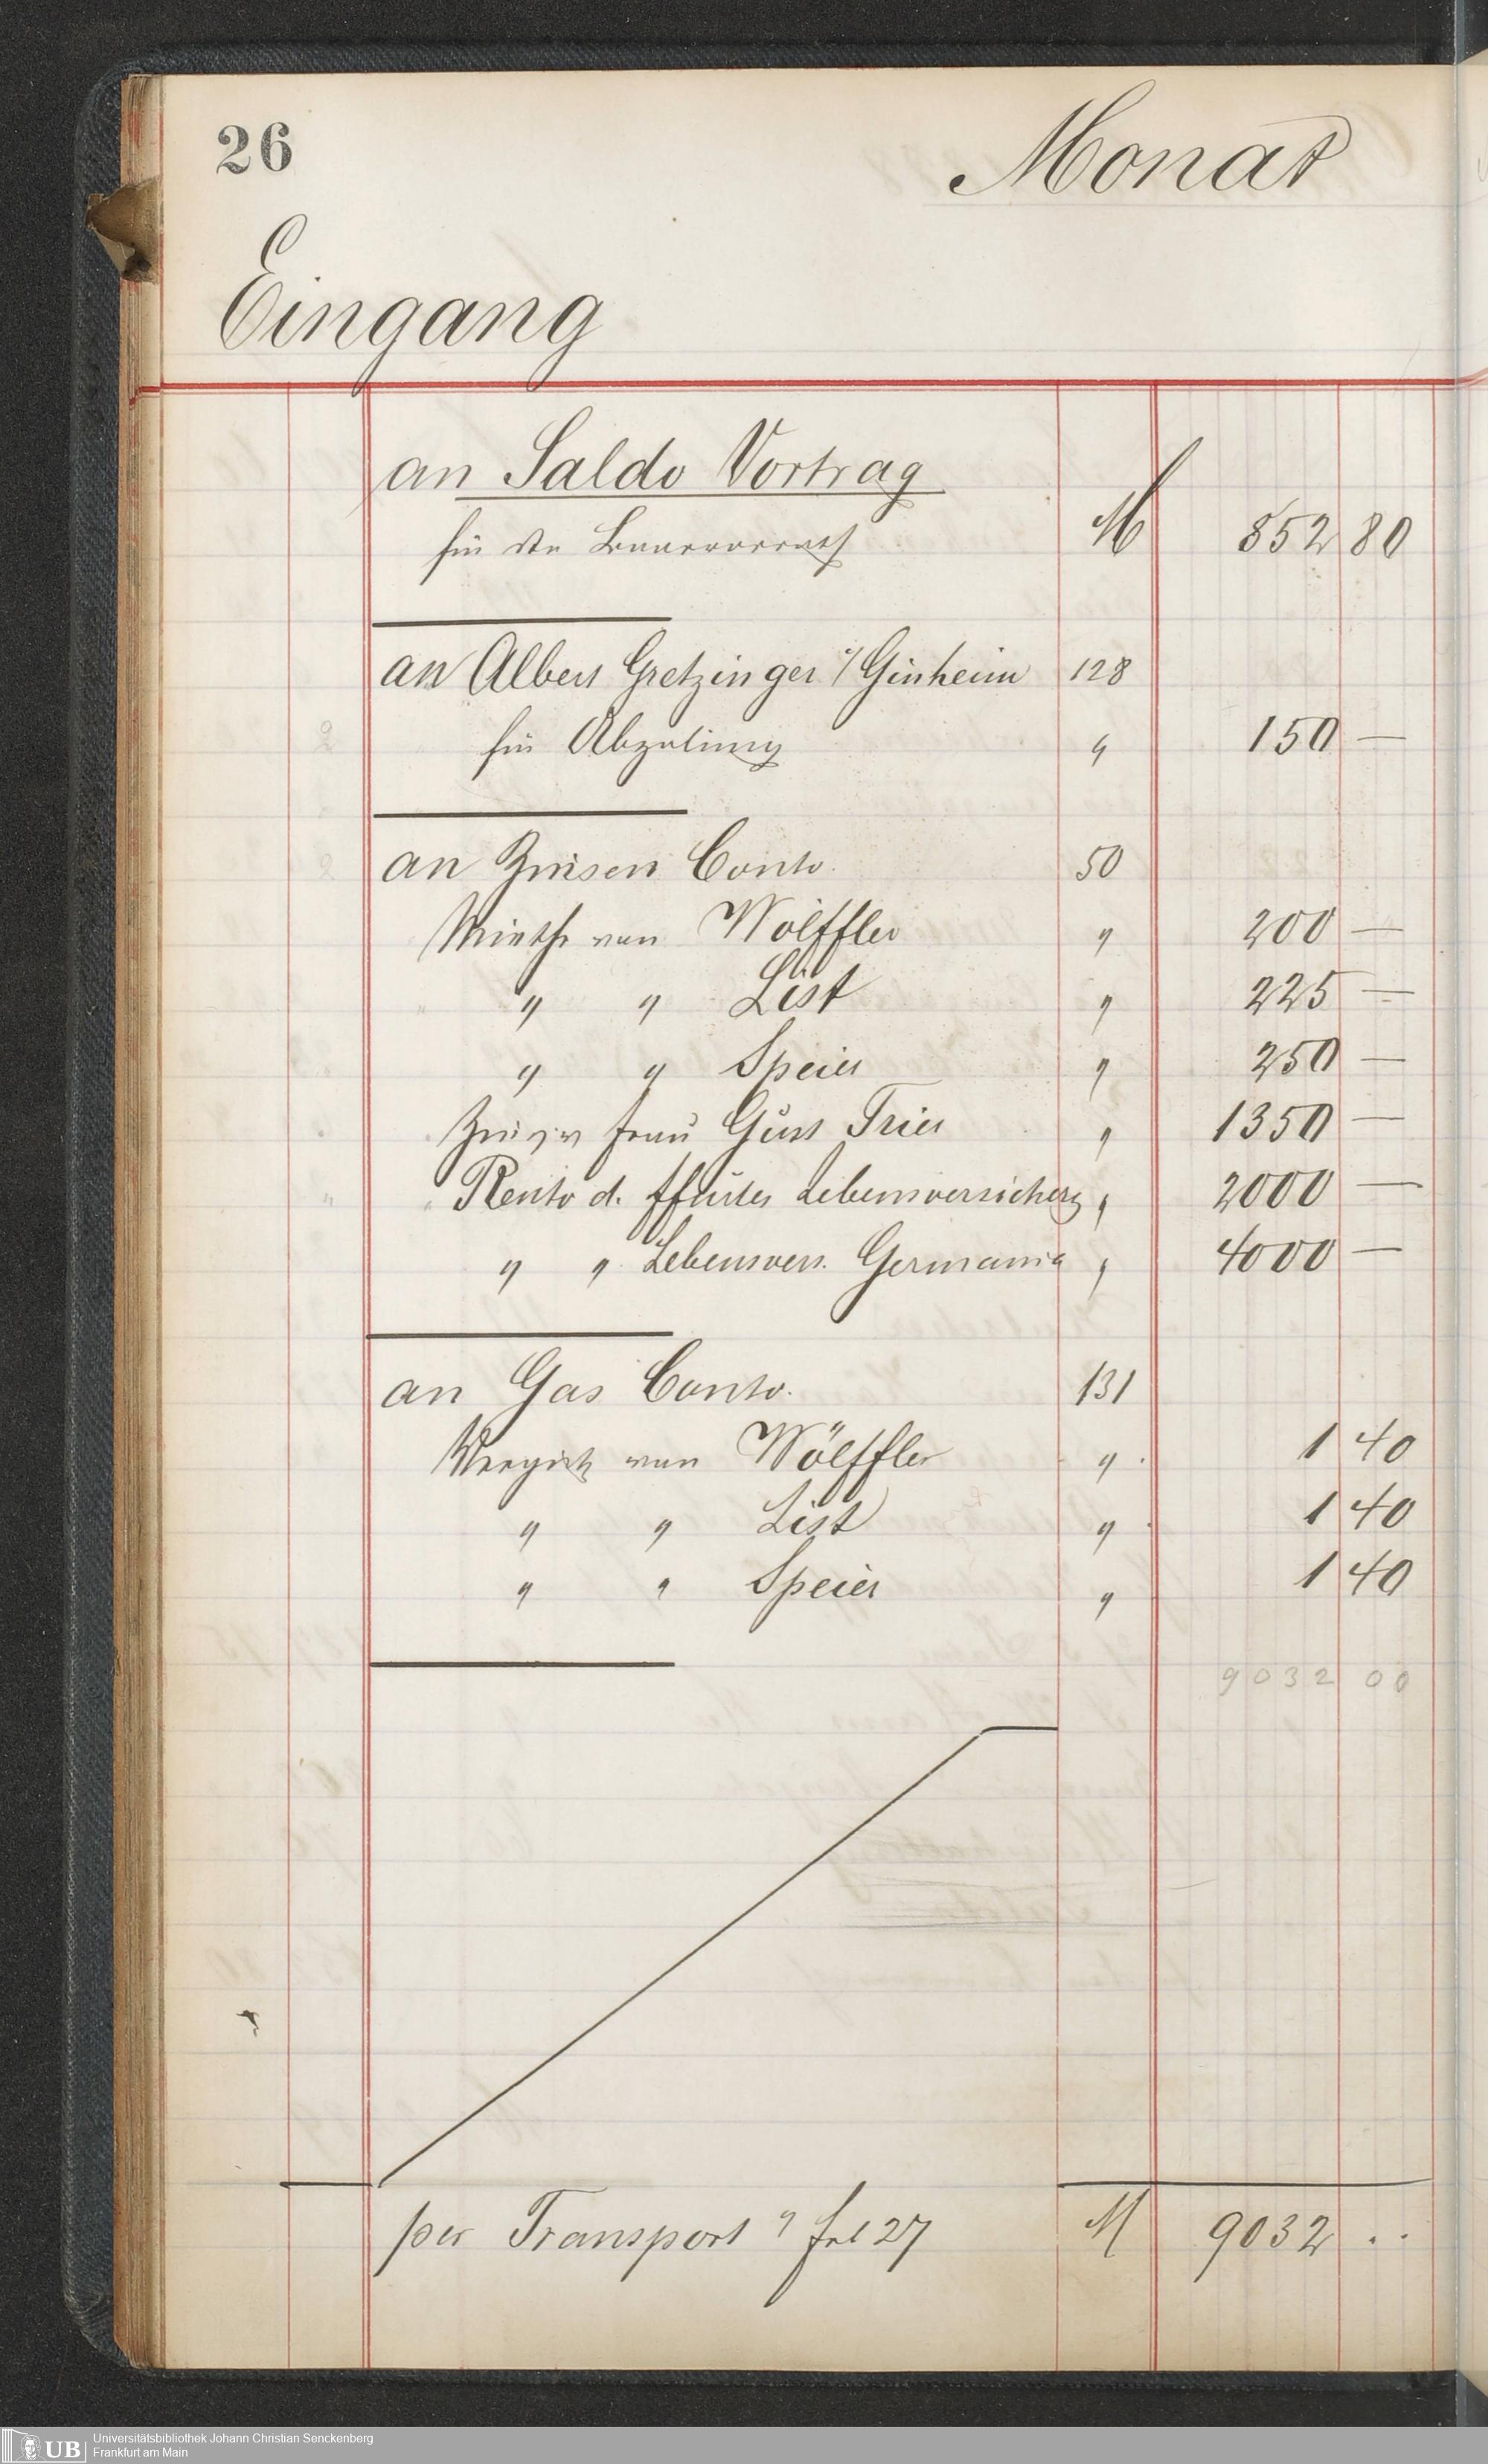 26
Monat
Eingang
an Saldo Vortrag
für den Baarvorrath M 852 80
an Albert Gretzinger Ginheim 128
für Abzalung " 150 —
an Zinsen Conto 50
Miethe von Wölffler " 200 —
" " List " 225 —
" " Speier " 250 —
Zinsen Frau Gust Trier " 1350 —
Rente d. Lebensversicherg " 2000 —
" " Lebensvers. Germania " 4000 —
an Gas Conto. 131
von Wölffler " 1 40
" " List " 1 40
" " Speier " 1 40
9032 00
per Transport fol 27 M 9032 . .
UB
Universitätsbibliothek Johann Christian Senckenberg
Frankfurt am Main